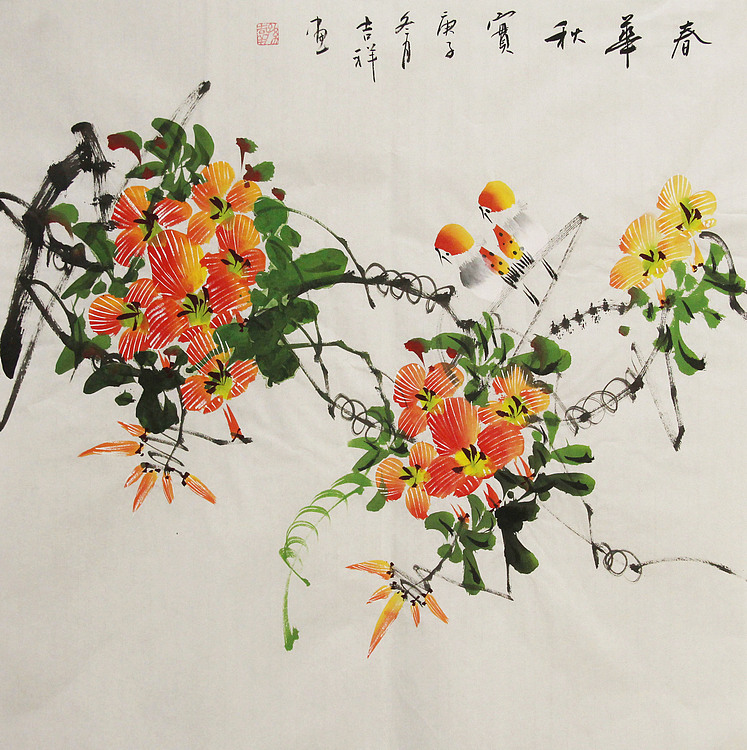 春華秋實 庚子冬月 吉祥 畫